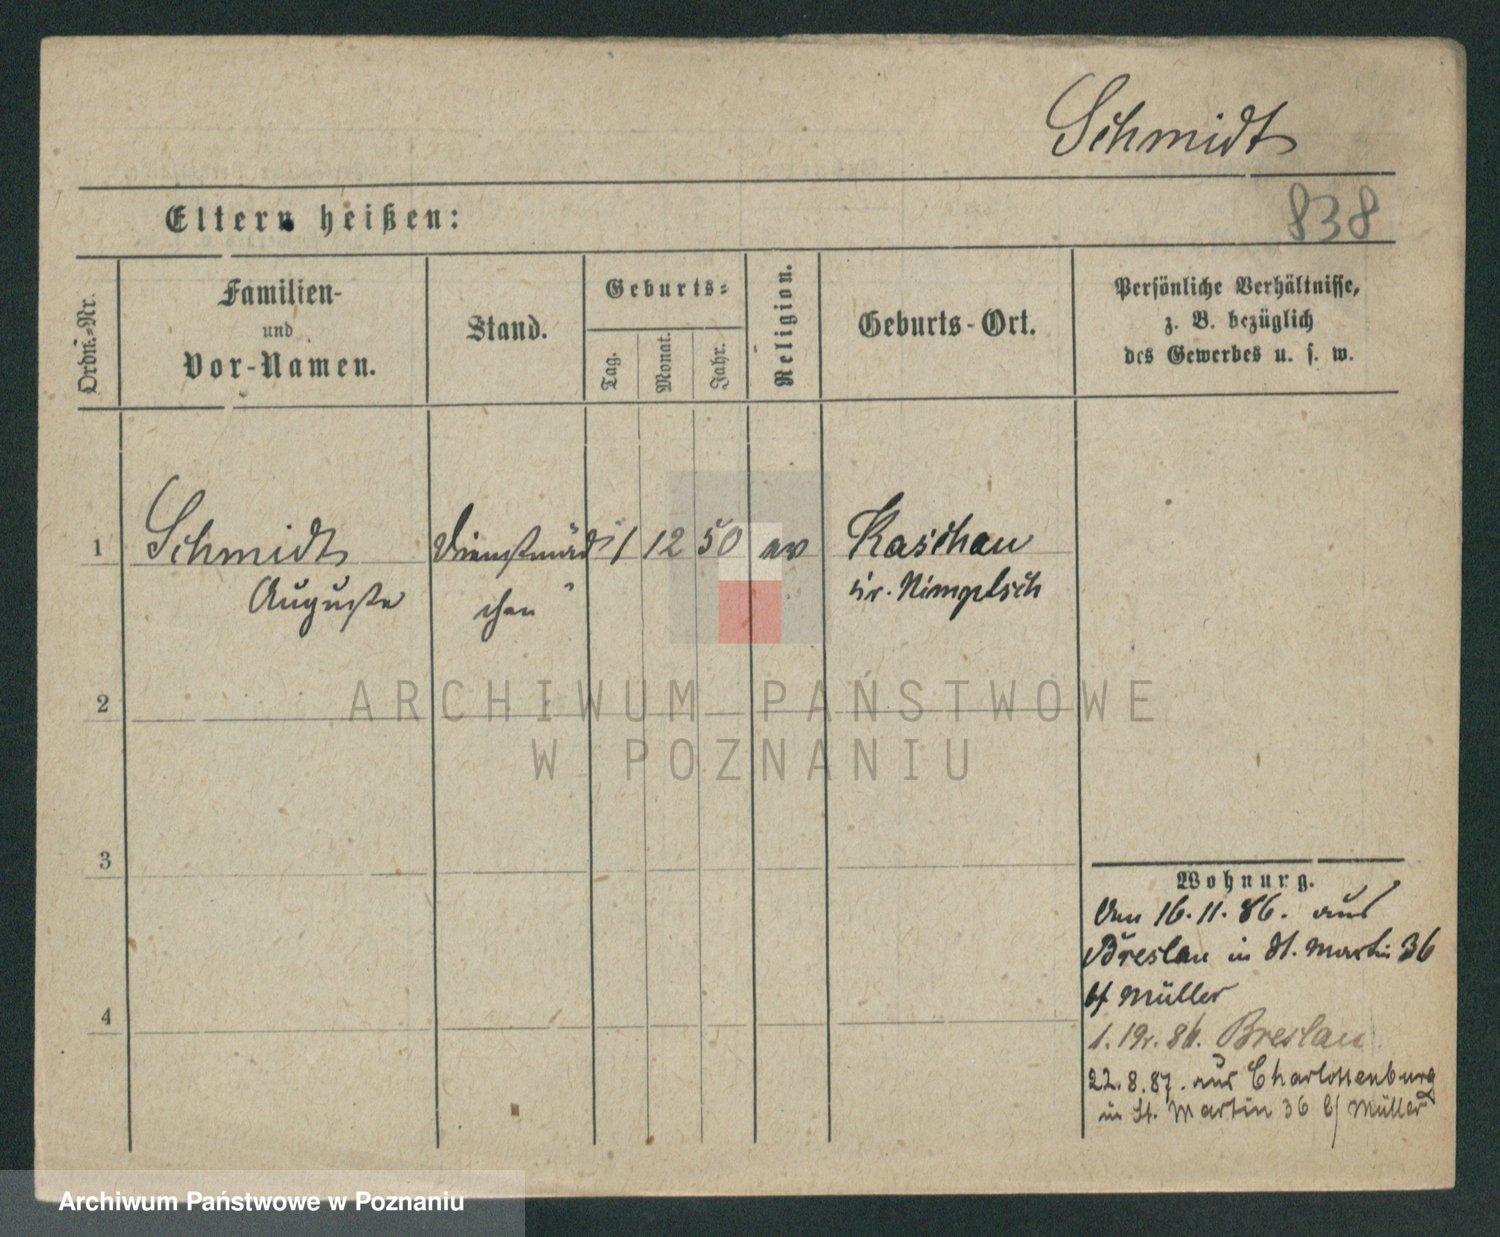 Schmidt
838
Eltern heißen:
Ordn.-Nr.
Familien-
und
Vor-Namen.
Stand.
Geburts-
Tag.
Monat.
Jahr.
Religion.
Geburts-Ort.
Persönliche Verhältnisse,
z. B. bezüglich
des Gewerbes u. s. w.
1
Schmidt
Auguste
Dienstmäd
chen
1 12 50 ev
Raschau
Kr. Nimptsch
2
3
4
Wohnung.
Von 16. 11. 86. aus
Breslau in St. Martin 36
b/ Müller
86. Breslau
22. 8. 87. aus Charlottenburg
in St. Martin 36 b/ Müller
ARCHIWUM PAŃSTWOWE
W POZNANIU
Archiwum Państwowe w Poznaniu